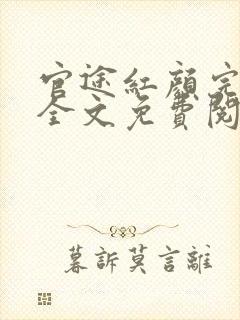 官途紅顏完
全文免費閱
暮訴莫言離